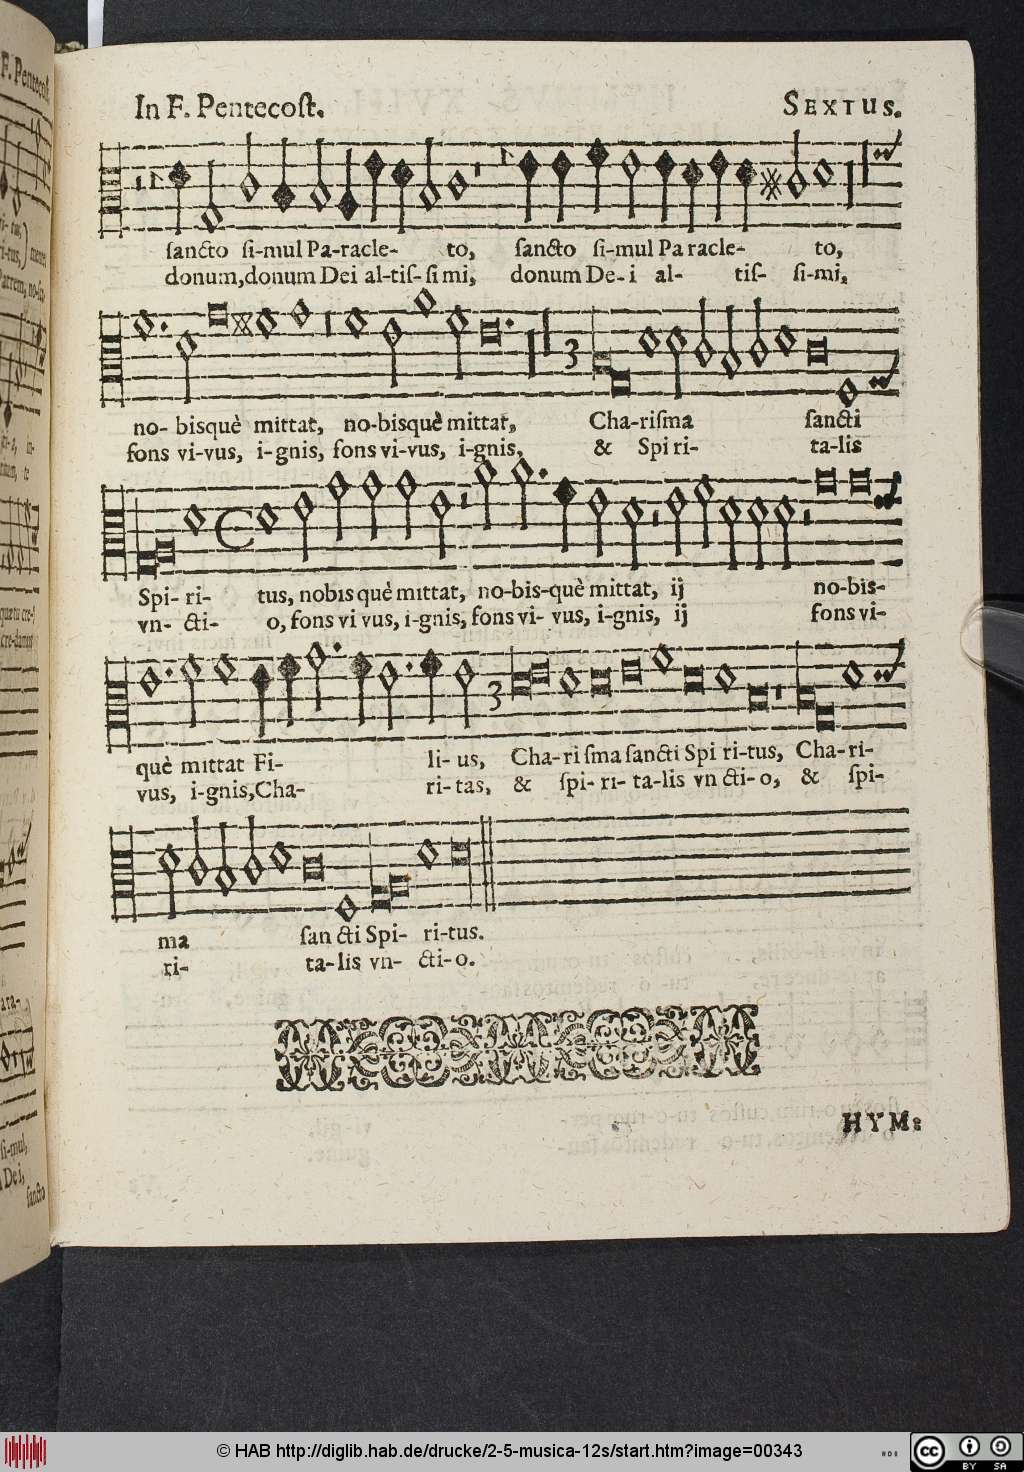 In F. Pentecoſt.
SEXTUS.
ſancto ſi-mul Pa-racle- to, ſancto ſi-mul Pa racle- to,
donum, donum Dei al-tiſ-ſi mi, donum De-i al- tiſ- ſi-mi,
3
no- bisquè mittat, no-bisquè mittat, Cha-riſma ſancti
fons vi-vus, i-gnis, fons vi-vus, i-gnis, & Spi ri- ta-lis
Spi- ri- tus, nobis què mittat, no-bis-què mittat, ij no-bis-
vn- cti- o, fons vi vus, i-gnis, fons vi- vus, i-gnis, ij fons vi-
3
què mittat Fi- li- us, Cha-ri ſma ſancti Spi ri-tus, Cha-ri-
vus, i-gnis, Cha- ri-tas, & ſpi-ri-ta-lis vn cti-o, & ſpi-
ma ſan cti Spi- ri-tus.
ri- ta-lis vn- cti-o.
HYM:
F. Pentecoſt.
ſi-mul,
Dei,
ſancto
© HAB http://diglib.hab.de/drucke/2-5-musica-12s/start.htm?image=00343
cc BY SA